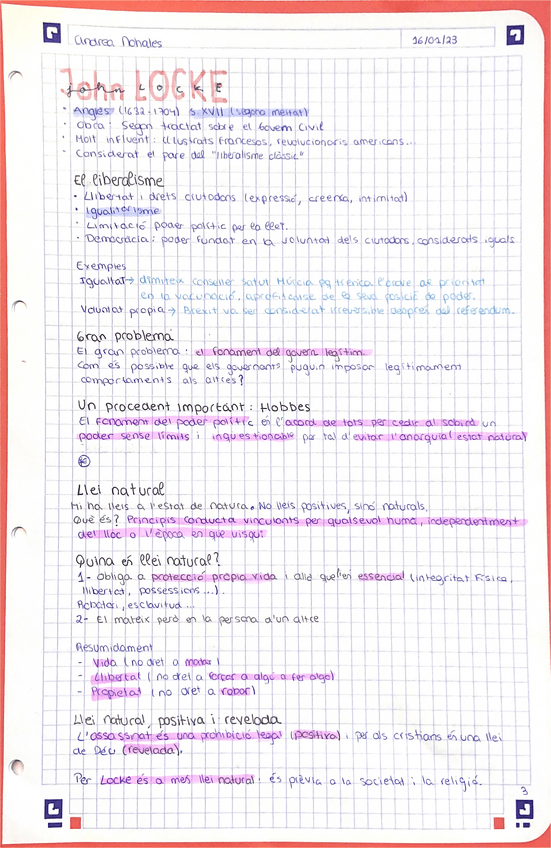 Andrea Nohales
16/01/23
John LOCKE
· Anglès (1632-1704) S. XVII (segona meitat)
· Obra: Segon tractat sobre el Govern Civil
· Molt influent: il·lustrats francesos, revolucionaris americans...
· Considerat el pare del "liberalisme clàssic"
El liberalisme
· Llibertat i drets ciutadans (expressió, creença, intimitat)
· Igualitarisme
· Limitació poder polític per la llei.
· Democràcia: poder fundat en la voluntat dels ciutadans, considerats iguals
Exemples
Igualtat → dimiteix conseller salut Múrcia pq trenca l'ordre de prioritat
en la vacunació, aprofitant-se de la seva posició de poder.
Voluntat pròpia → Brexit va ser considerat irreversible després del referèndum.
Gran problema
El gran problema: el fonament del govern legítim.
Com és possible que els governants puguin imposar legítimament
comportaments als altres?
Un precedent important: Hobbes
El fonament del poder polític és l'acord de tots per cedir al sobirà un
poder sense límits i inqüestionable per tal d'evitar l'anarquia/estat natural
Llei natural
Hi ha lleis a l'estat de natura. No lleis positives, sinó naturals.
Què és? Principis conducta vinculants per qualsevol humà, independentment
del lloc o l'època en que visqui
Quina és llei natural?
1- Obliga a protecció pròpia vida i allò que li és essencial (integritat física,
llibertat, possessions...).
Robatori, esclavitud...
2- El mateix però en la persona d'un altre
Resumidament
- Vida (no dret a matar)
- Llibertat (no dret a forçar a algú a fer algo)
- Propietat (no dret a robar)
Llei natural, positiva i revelada
L'assassinat és una prohibició legal (positiva) i per als cristians és una llei
de Déu (revelada).
Per Locke és a més llei natural: és prèvia a la societat i la religió.
3